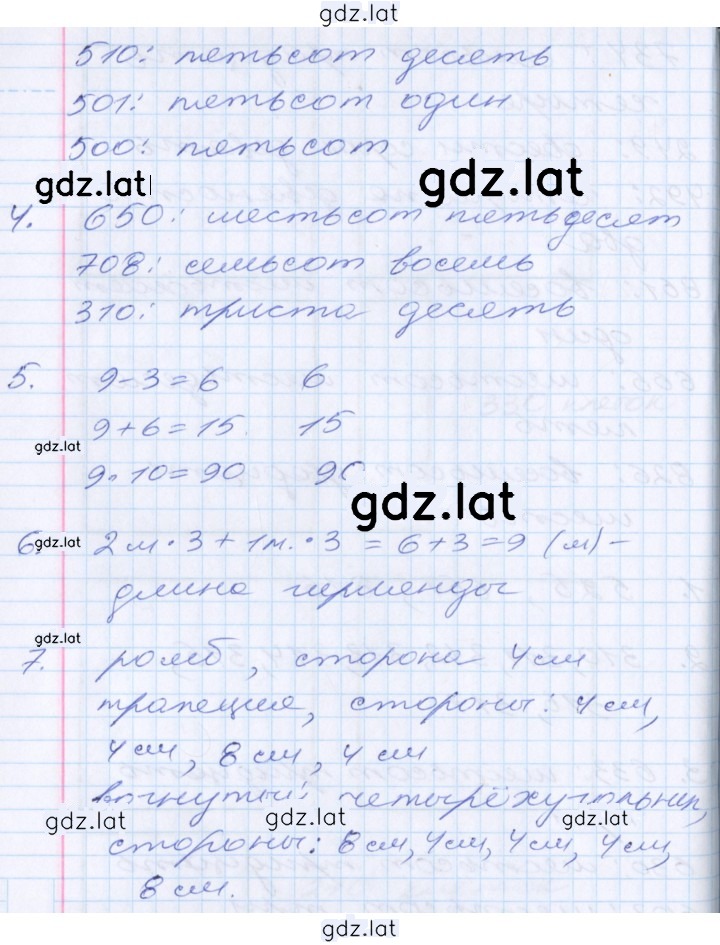 gdz.lat
510: пятьсот десять
501: пятьсот один
500: пятьсот
gdz.lat gdz.lat
4. 650: шестьсот пятьдесят
708: семьсот восемь
310: триста десять
5. 9-3=6 6
9+6=15. 15
gdz.lat
9·10=90 90
gdz.lat
6. gdz.lat 2м·3+1м.·3=6+3=9 (м)-
длина гирлянды
gdz.lat
7. ромб, сторона 4см
трапеция, стороны: 4см,
4см, 8см, 4см
вогнутый четырёхугольник,
gdz.lat gdz.lat gdz.lat
стороны: 8см, 4см, 4см, 4см,
8см.
gdz.lat